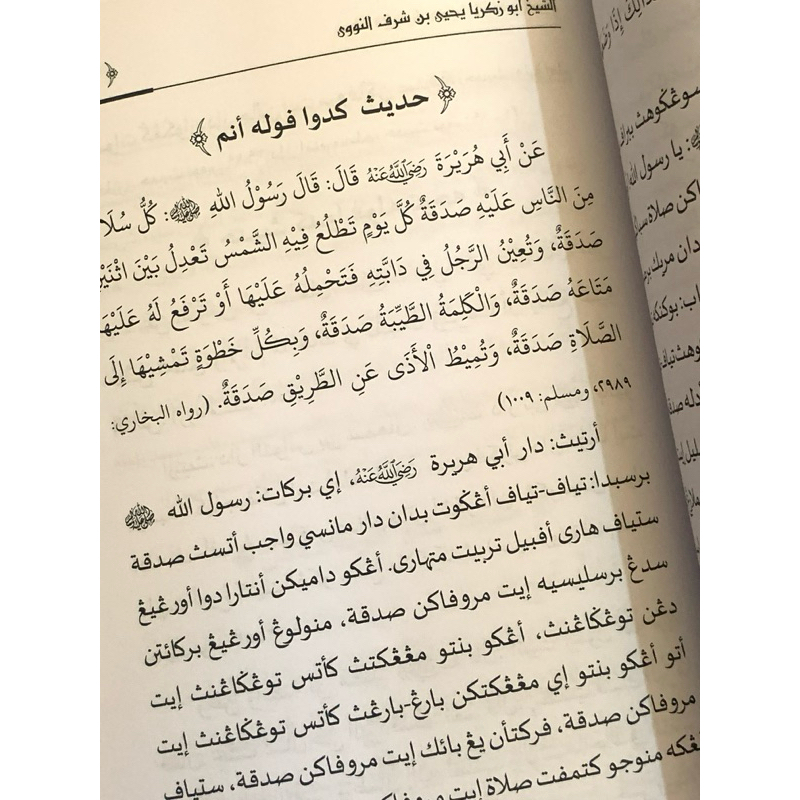 الشيخ أبو زكريا يحيى بن شرف النووى
﴿ حديث كدوا فوله أنم ﴾
عَنْ أَبِي هُرَيْرَةَ رَضِيَ اللَّهُ عَنْهُ قَالَ: قَالَ رَسُوْلُ اللهِ ﷺ: كُلُّ سُلَا
مِنَ النَّاسِ عَلَيْهِ صَدَقَةٌ كُلَّ يَوْمٍ تَطْلُعُ فِيْهِ الشَّمْسُ تَعْدِلُ بَيْنَ اثْنَيْنِ
صَدَقَةٌ، وَتُعِيْنُ الرَّجُلَ فِي دَابَّتِهِ فَتَحْمِلُهُ عَلَيْهَا أَوْ تَرْفَعُ لَهُ عَلَيْهَا
مَتَاعَهُ صَدَقَةٌ، وَالْكَلِمَةُ الطَّيِّبَةُ صَدَقَةٌ، وَبِكُلِّ خَطْوَةٍ تَمْشِيْهَا إِلَى
الصَّلَاةِ صَدَقَةٌ، وَتُمِيْطُ الْأَذَى عَنِ الطَّرِيْقِ صَدَقَةٌ. (رواه البخاري:
٢٩٨٩، ومسلم: ١٠٠٩)
أرتيث: دار أبي هريرة رَضِيَ اللَّهُ عَنْهُ، إي بركات: رسول الله ﷺ
برسبدا: تياف-تياف أڠݢوت بدان دار مانسي واجب أتسث صدقة
ستياف هارى أفبيل تربيت متهارى. أڠكو داميكن أنتارا دوا أورڠيڠ
سدڠ برسليسيه إيت مروفاكن صدقة، منولوڠ أورڠيڠ بركائتن
دڠن توڠݢاڠنث، أڠكو بنتو مڠڠكتث كأتس توڠݢاڠنث إيت
أتو أڠكو بنتو إي مڠڠكتكن بارڠ-بارڠث كأتس توڠݢاڠنث إيت
مروفاكن صدقة، فركتأن يڠ بائك إيت مروفاكن صدقة، ستياف
ڠكه منوجو كتمفت صلاة إيت مروفاكن صدقة